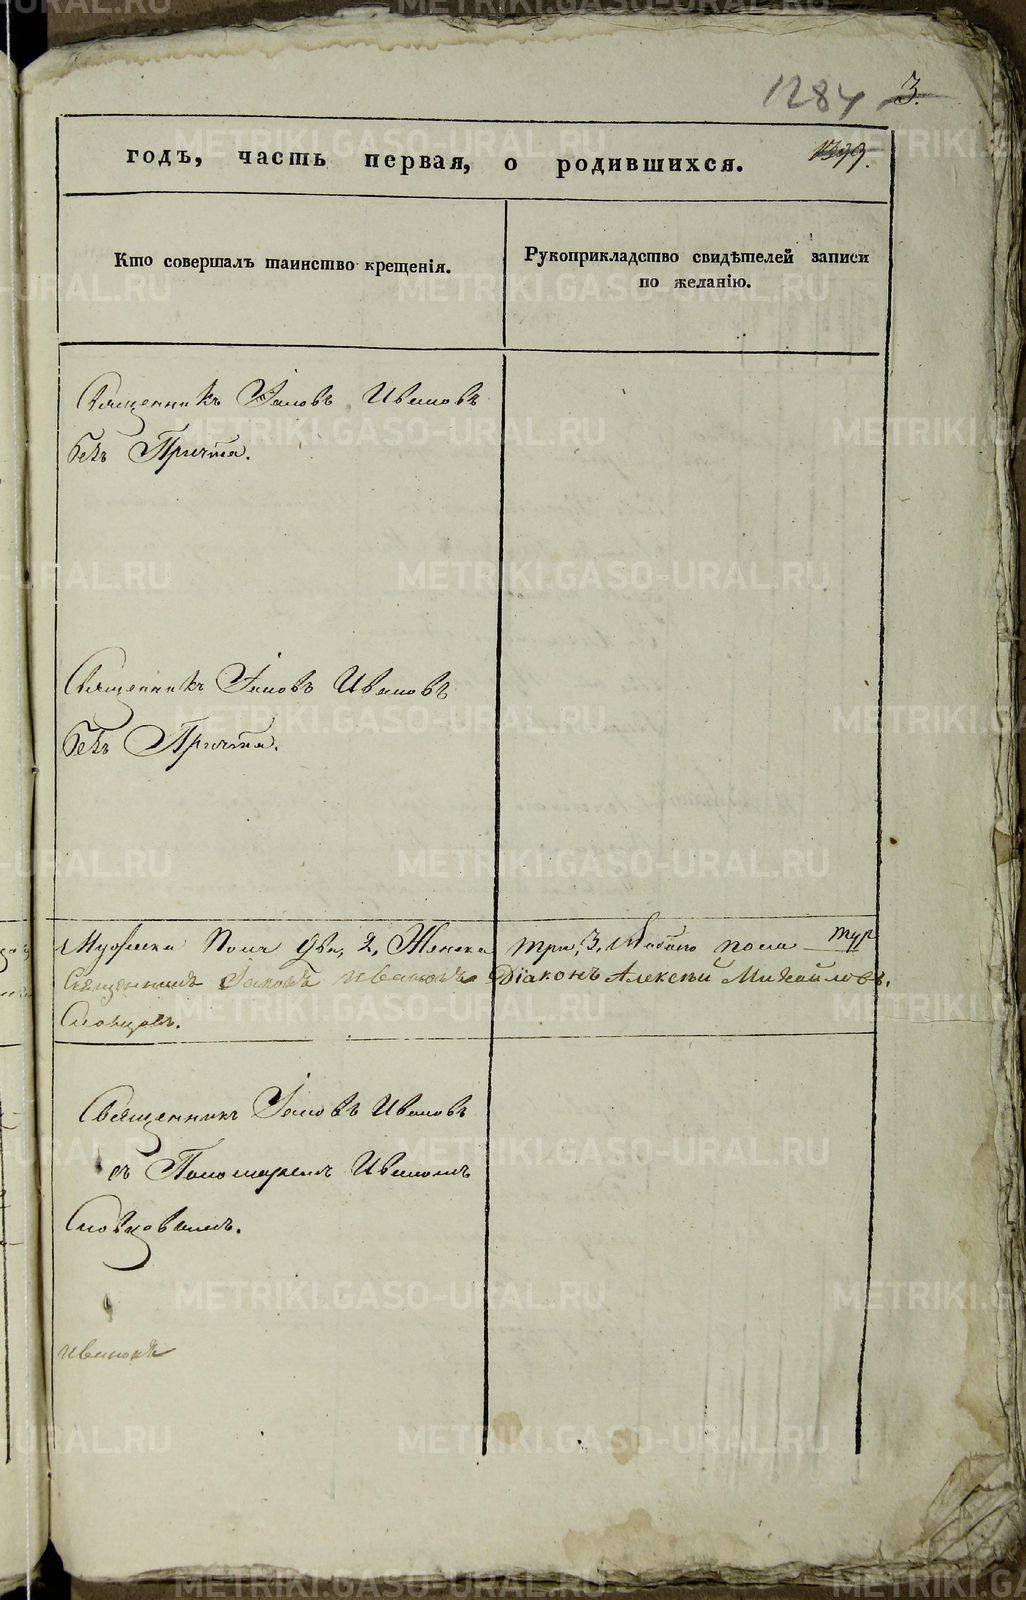 1284 3.
годъ, часть первая, о родившихся.
Кто совершалъ таинство крещенія.
Рукоприкладство свидѣтелей записи
по желанію.
Священникъ Іаковъ Ивановъ
безъ Причта.
Священникъ Іаковъ Ивановъ
безъ Причта.
Мужеска Пола два, 2, Женска три, 3, пола
Священникъ Іаковъ Ивановъ Діаконъ Алексѣй Михайловъ.
Словцовъ.
Священникъ Іаковъ Ивановъ
съ Пономаремъ Иваномъ
Словцовымъ.
Ивановъ
METRIKI.GASO-URAL.RU